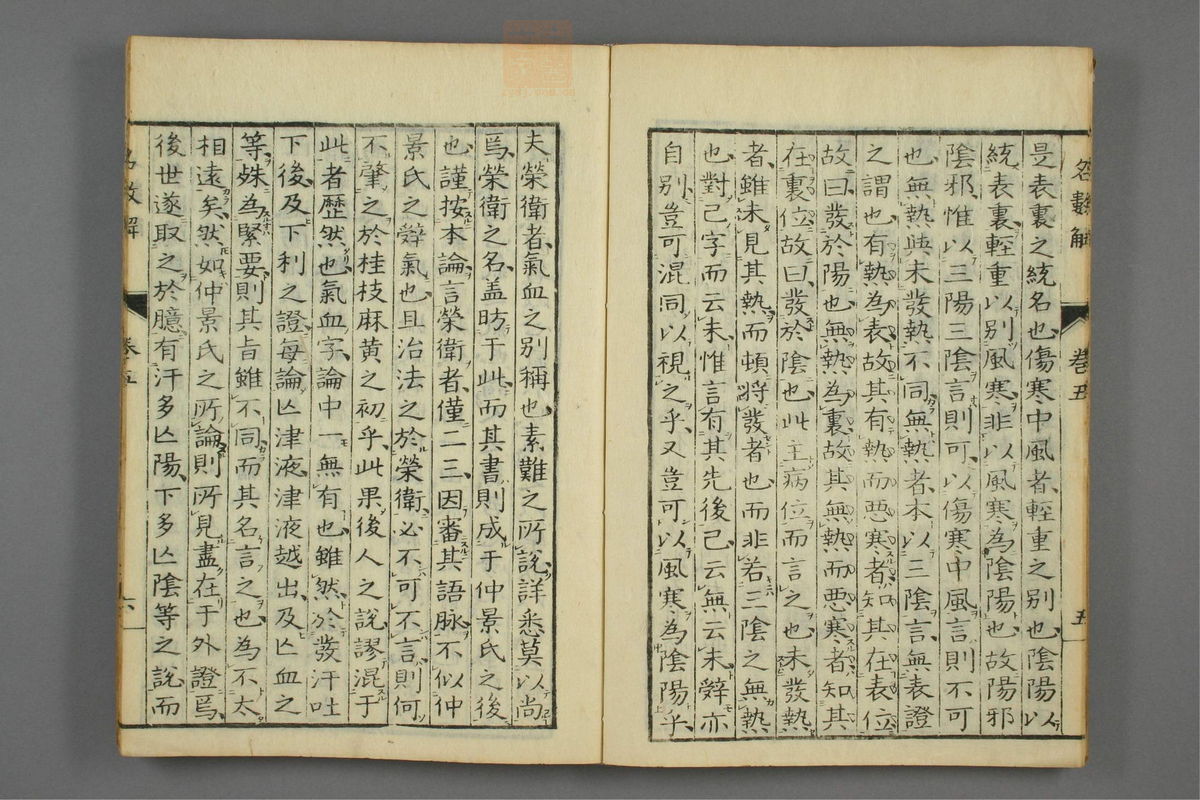 名數解 卷五 五
是表裏之統名也傷寒中風者輕重之別也陰陽以
統表裏輕重以別風寒非以風寒為陰陽也故陽邪
陰邪惟以三陽三陰言則可以傷寒中風言則不可
也無熱與未發熱不同無熱者本以三陰言無表證
之謂也有熱為表故其有熱而惡寒者知其在表位
故曰發於陽也無熱為裏故其無熱而惡寒者知其
在裏位故曰發於陰也此主病位而言之也未發熱
者雖未見其熱而頓將發者也而非若三陰之無熱
也對已字而云未惟言有其先後已云無云未辭亦
自別豈可混同以視之乎又豈可以風寒為陰陽乎
夫榮衛者氣血之別稱也素難之所說詳悉莫以尚
焉榮衛之名盖昉于此而其書則成于仲景氏之後
也謹按本論言榮衛者僅二三因審其語脉不似仲
景氏之辭氣也且治法之於榮衛必不可不言則何
不肇之於桂枝麻黃之初乎此果後人之說謬混于
此者歷然也氣血字論中一無有也雖然於發汗吐
下後及下利之證每論亾津液津液越出及亾血之
等殊為緊要則其旨雖不同而其名言之也為不太
相遠矣然如仲景氏之所論則所見盡在于外證焉
後世遂取之於臆有汗多亾陽下多亾陰等之說而
名數解 卷五 六